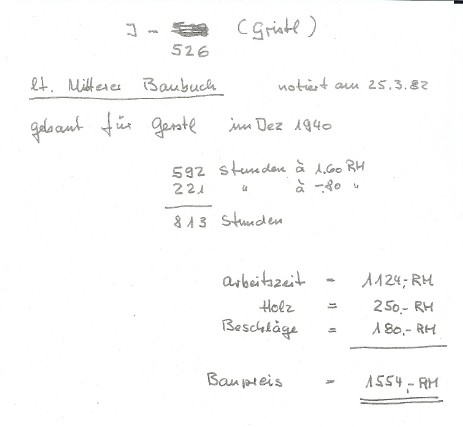 J - (Gristl)
526
lt. Mitterer Baubuch notiert am 25.3.82
gebaut für Gerstl im Dez 1940
592 Stunden à 1.60 RM
221 " à -.80 "
813 Stunden
Arbeitszeit = 1124,- RM
Holz = 250,- RM
Beschläge = 180,- RM
Baupreis = 1554,- RM